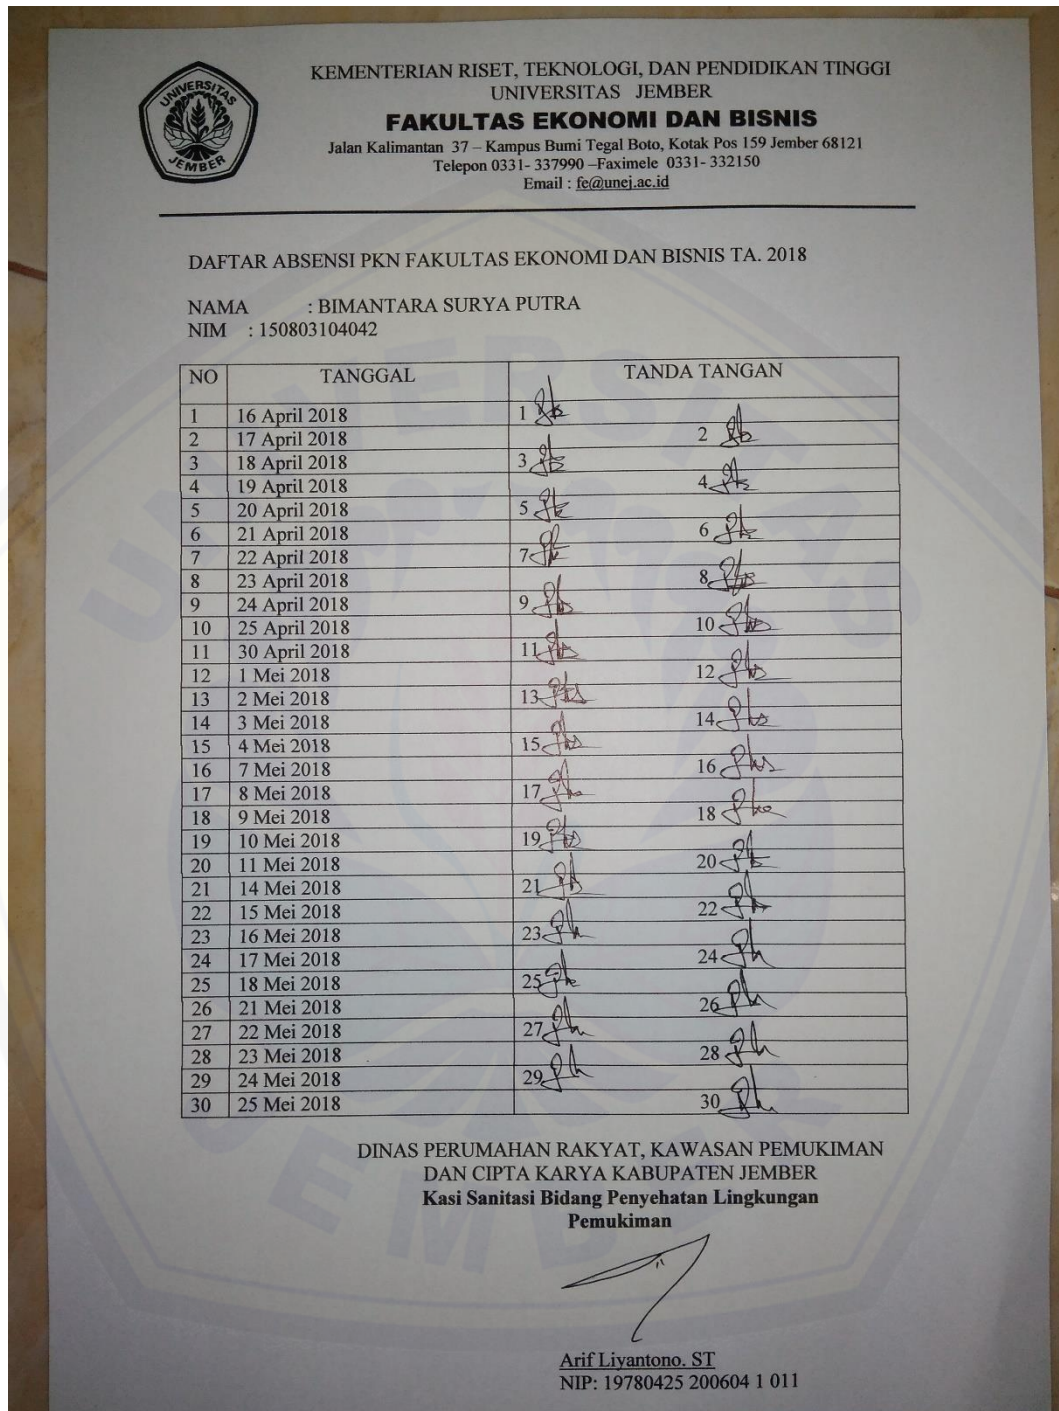 UNIVERSITAS
JEMBER
KEMENTERIAN RISET, TEKNOLOGI, DAN PENDIDIKAN TINGGI
UNIVERSITAS JEMBER
FAKULTAS EKONOMI DAN BISNIS
Jalan Kalimantan 37 – Kampus Bumi Tegal Boto, Kotak Pos 159 Jember 68121
Telepon 0331- 337990 –Faximele 0331- 332150
Email : fe@unej.ac.id
DAFTAR ABSENSI PKN FAKULTAS EKONOMI DAN BISNIS TA. 2018
NAMA : BIMANTARA SURYA PUTRA
NIM : 150803104042
NO TANGGAL TANDA TANGAN
1 16 April 2018 1
2 17 April 2018 2
3 18 April 2018 3
4 19 April 2018 4
5 20 April 2018 5
6 21 April 2018 6
7 22 April 2018 7
8 23 April 2018 8
9 24 April 2018 9
10 25 April 2018 10
11 30 April 2018 11
12 1 Mei 2018 12
13 2 Mei 2018 13
14 3 Mei 2018 14
15 4 Mei 2018 15
16 7 Mei 2018 16
17 8 Mei 2018 17
18 9 Mei 2018 18
19 10 Mei 2018 19
20 11 Mei 2018 20
21 14 Mei 2018 21
22 15 Mei 2018 22
23 16 Mei 2018 23
24 17 Mei 2018 24
25 18 Mei 2018 25
26 21 Mei 2018 26
27 22 Mei 2018 27
28 23 Mei 2018 28
29 24 Mei 2018 29
30 25 Mei 2018 30
DINAS PERUMAHAN RAKYAT, KAWASAN PEMUKIMAN
DAN CIPTA KARYA KABUPATEN JEMBER
Kasi Sanitasi Bidang Penyehatan Lingkungan
Pemukiman
Arif Liyantono. ST
NIP: 19780425 200604 1 011
UNIVERSITAS
JEMBER